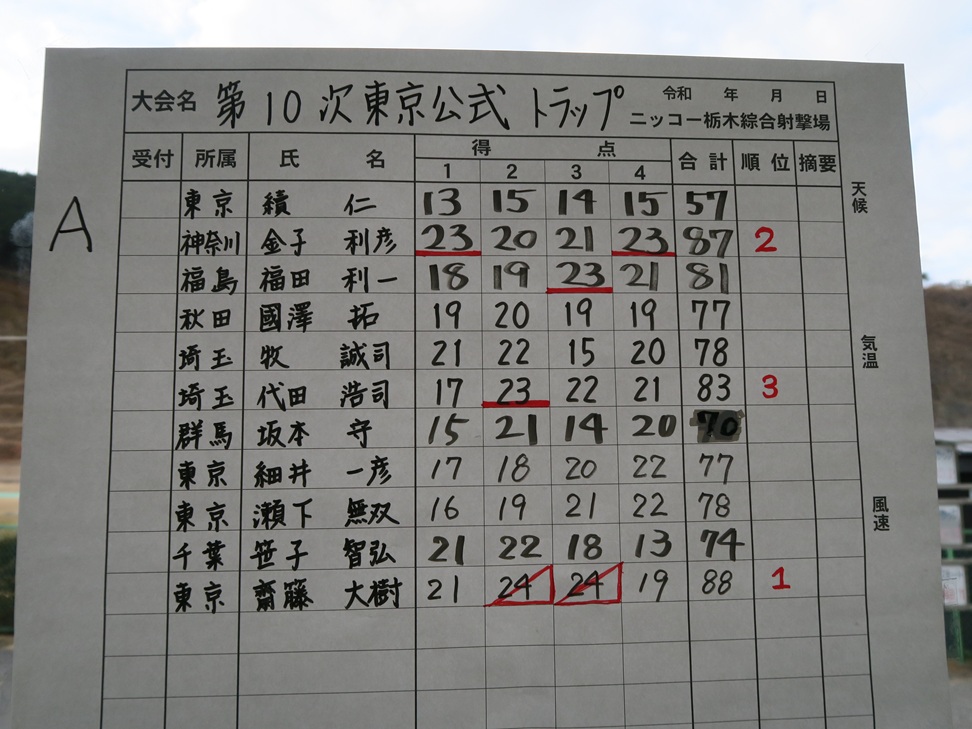 大会名 第10次東京公式 トラップ 令和 年 月 日
ニッコー栃木綜合射撃場
受付 所属 氏 名 得 点 合計 順位 摘要
1 2 3 4
天候
A
東京 績 仁 13 15 14 15 57
神奈川 金子 利彦 23 20 21 23 87 2
福島 福田 利一 18 19 23 21 81
秋田 國澤 拓 19 20 19 19 77
気温
埼玉 牧 誠司 21 22 15 20 78
埼玉 代田 浩司 17 23 22 21 83 3
群馬 坂本 守 15 21 14 20 70
東京 細井 一彦 17 18 20 22 77
風速
東京 瀬下 無双 16 19 21 22 78
千葉 笹子 智弘 21 22 18 13 74
東京 齋籐 大樹 21 24 24 19 88 1